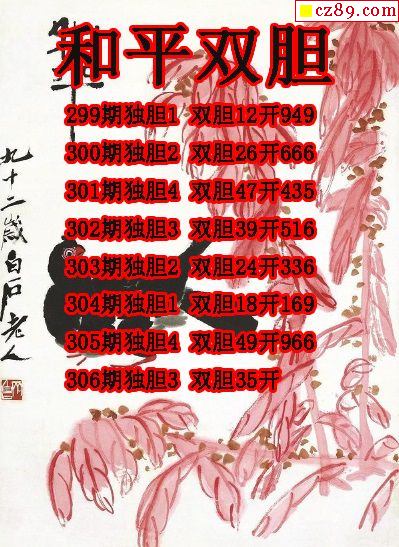 cz89.com
和平双胆
299期独胆1 双胆12开949
300期独胆2 双胆26开666
301期独胆4 双胆47开435
302期独胆3 双胆39开516
303期独胆2 双胆24开336
304期独胆1 双胆18开169
305期独胆4 双胆49开966
306期独胆3 双胆35开
九十二岁白石老人